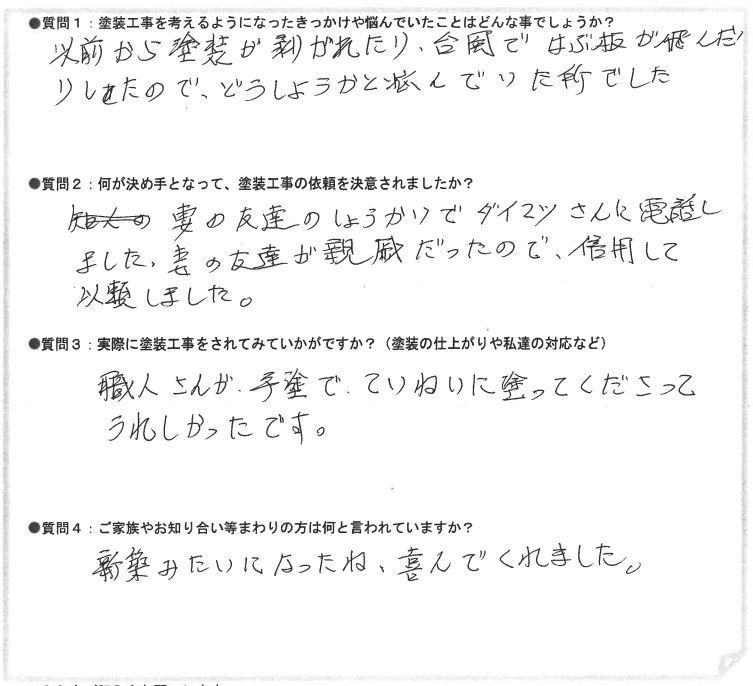 ●質問１：塗装工事を考えるようになったきっかけや悩んでいたことはどんな事でしょうか？
以前から塗装が剥がれたり、台風ではぶ板が飛んだ
りしたので、どうしようかと悩んでいた所でした
●質問２：何が決め手となって、塗装工事の依頼を決意されましたか？
妻の友達のしょうかいでダイスツさんに電話し
ました、妻の友達が親戚だったので、信用して
以頼しました。
●質問３：実際に塗装工事をされてみていかがですか？（塗装の仕上がりや私達の対応など）
職人さんが、手塗で、ていねいに塗ってくださって
うれしかったです。
●質問４：ご家族やお知り合い等まわりの方は何と言われていますか？
新築みたいになったね、喜んでくれました。